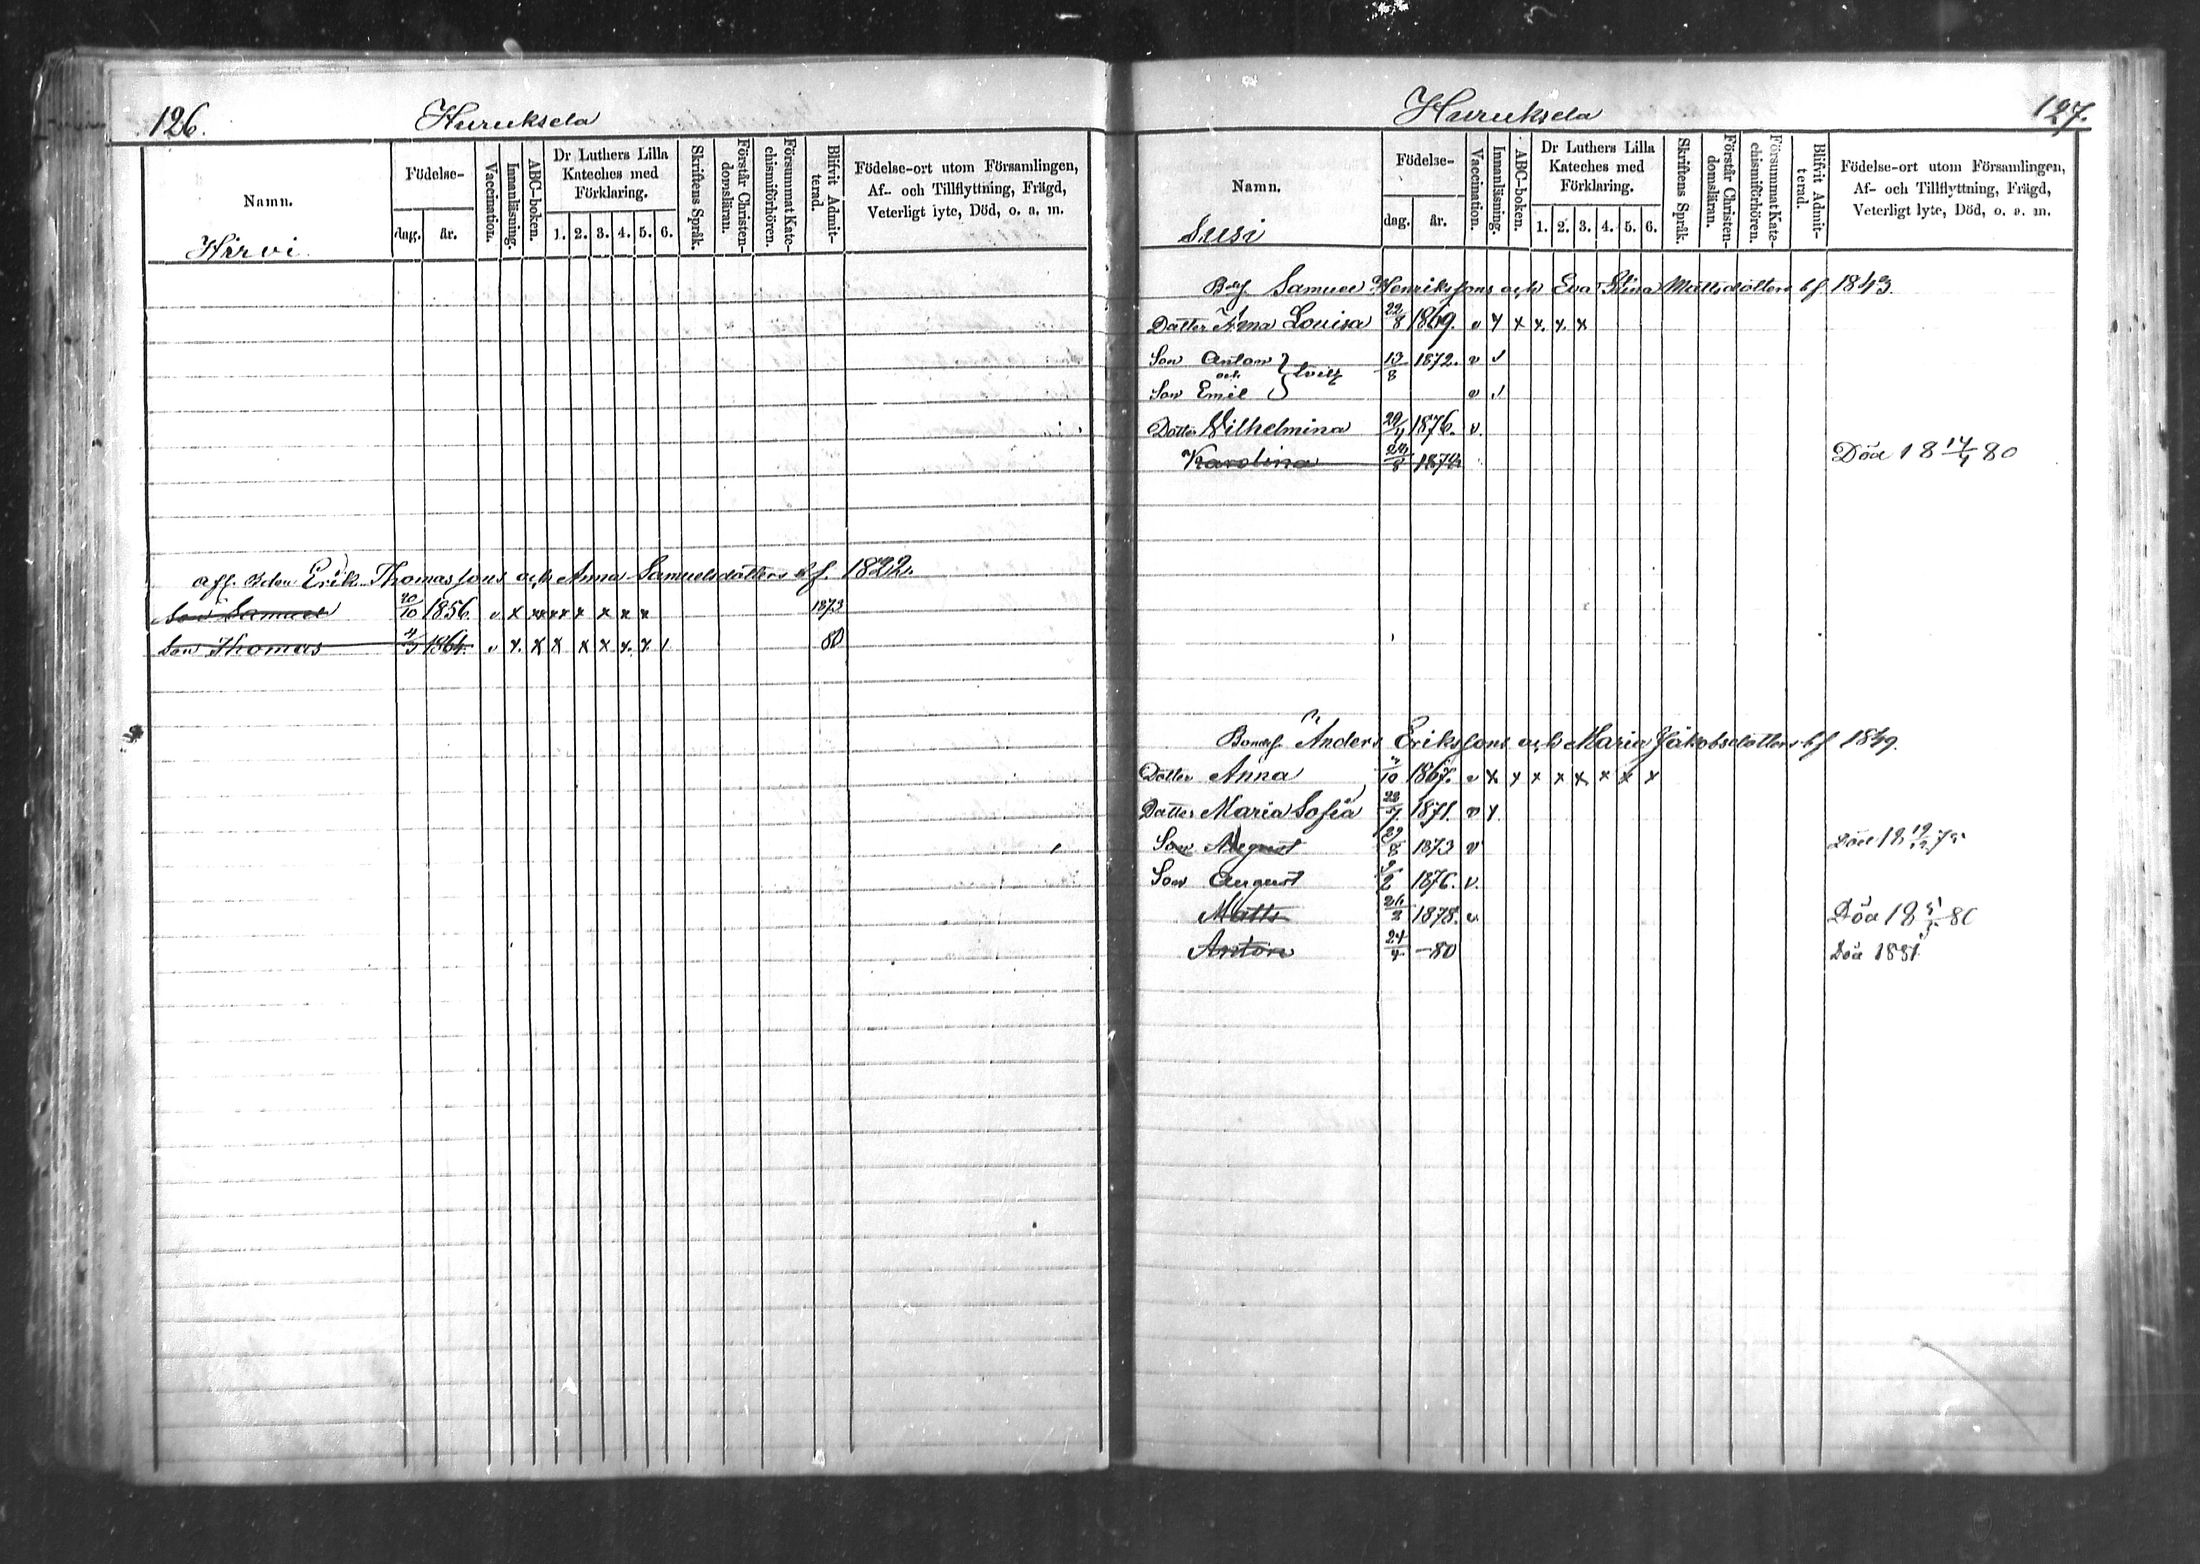 126.
Huruksela
Namn.
Födelse-
dag.
år.
Vaccination.
Innanläsning.
ABC-boken.
Dr Luthers Lilla
Kateches med
Förklaring.
1. 2. 3. 4. 5. 6.
Skriftens Språk.
Förstår Christen-
domsläran.
Försummat Kate-
chismiförhören.
Blifvit Admit-
terad.
Födelse-ort utom Församlingen,
Af- och Tillflyttning, Frägd,
Veterligt lyte, Död, o. a. m.
Hirvi
Erik Thomassons och Anna Samuelsdotters bf. 1822.
Son Samuel 20/10 1856. v x x x x x x x x 1873
Son Thomas 1864. v x. x x x x x. x. 80
127.
Huruksela
Namn.
Födelse-
dag.
år.
Vaccination.
Innanläsning.
ABC-boken.
Dr Luthers Lilla
Kateches med
Förklaring.
1. 2. 3. 4. 5. 6.
Skriftens Språk.
Förstår Christen-
domsläran.
Försummat Kate-
chismiförhören.
Blifvit Admit-
terad.
Födelse-ort utom Församlingen,
Af- och Tillflyttning, Frägd,
Veterligt lyte, Död, o. a. m.
Susi
Samuel Henrikssons och Eva Stina Mattsdotters bf 1843.
Dotter Louisa 22/8 1869. v x x x. x. x
Son Anton 13/8 1872. v
och
Son Emil v
Dotter Wilhelmina 1876. v.
Karolina Död 18 14/4 80
Anders Erikssons och Maria Jakobsdotters bf 1849.
Dotter Anna 1867. v x x x x x x x x
Dotter Maria Sofia 1871. v x
Son August 29/8 1873 v Död
Son August 1876. v.
Matts 26/2 1878. v. Död
Anton 24/4 -80 Död 1881